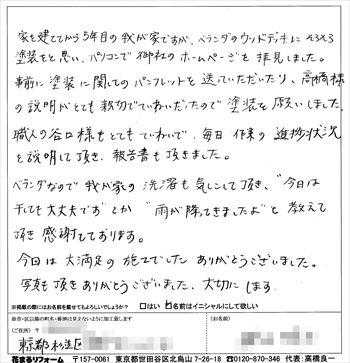 家を建ててから5年目の我が家ですが、ベランダのウッドデッキにそろそろ
塗装をと思い、パソコンで御社のホームページを拝見しました。
事前に塗装に関してのパンフレットを送っていただいたり、高橋様
の説明がとても親切でていねいだったので塗装を願いしました。
職人の谷口様もとてもていねいで、毎日作業の進捗状況
を説明して頂き、報告書も頂きました。
ベランダなので我が家の洗濯も気にして頂き、"今日は
干しても大丈夫です"とか"雨が降ってきましたよ"と教えて
頂き感謝しております。
今回は大満足の施工でした。ありがとうございました。
写真も頂きありがとうございました。大切にします。
※掲載の際にはお名前を載せてもよろしいでしょうか? □はい □名前をイニシャルにして欲しい
(ご住所) 〒
(お名前)
東京都
花まるリフォーム 〒157-0061 東京都世田谷区北烏山7-26-18 ☎0120-870-346 代表:高橋良一